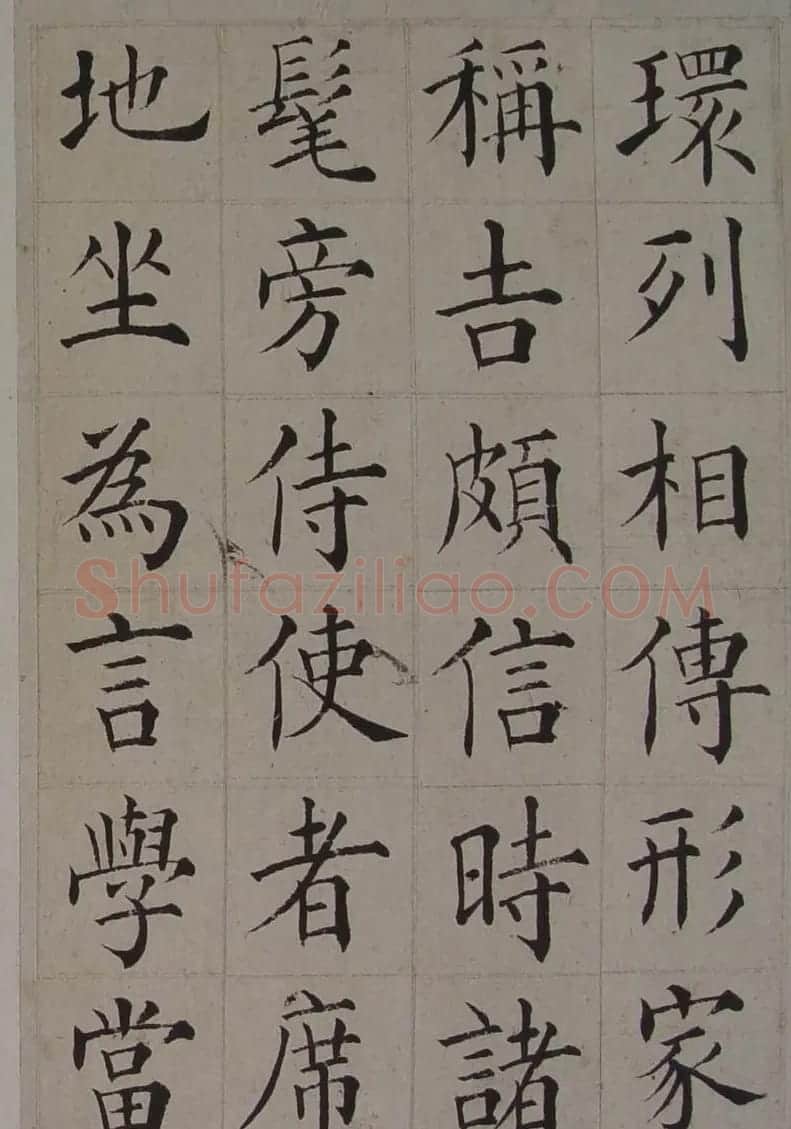 環列相傳形家
稱吉頗信時諸
髦旁侍使者席
地坐為言學當
Shufaziliao.COM